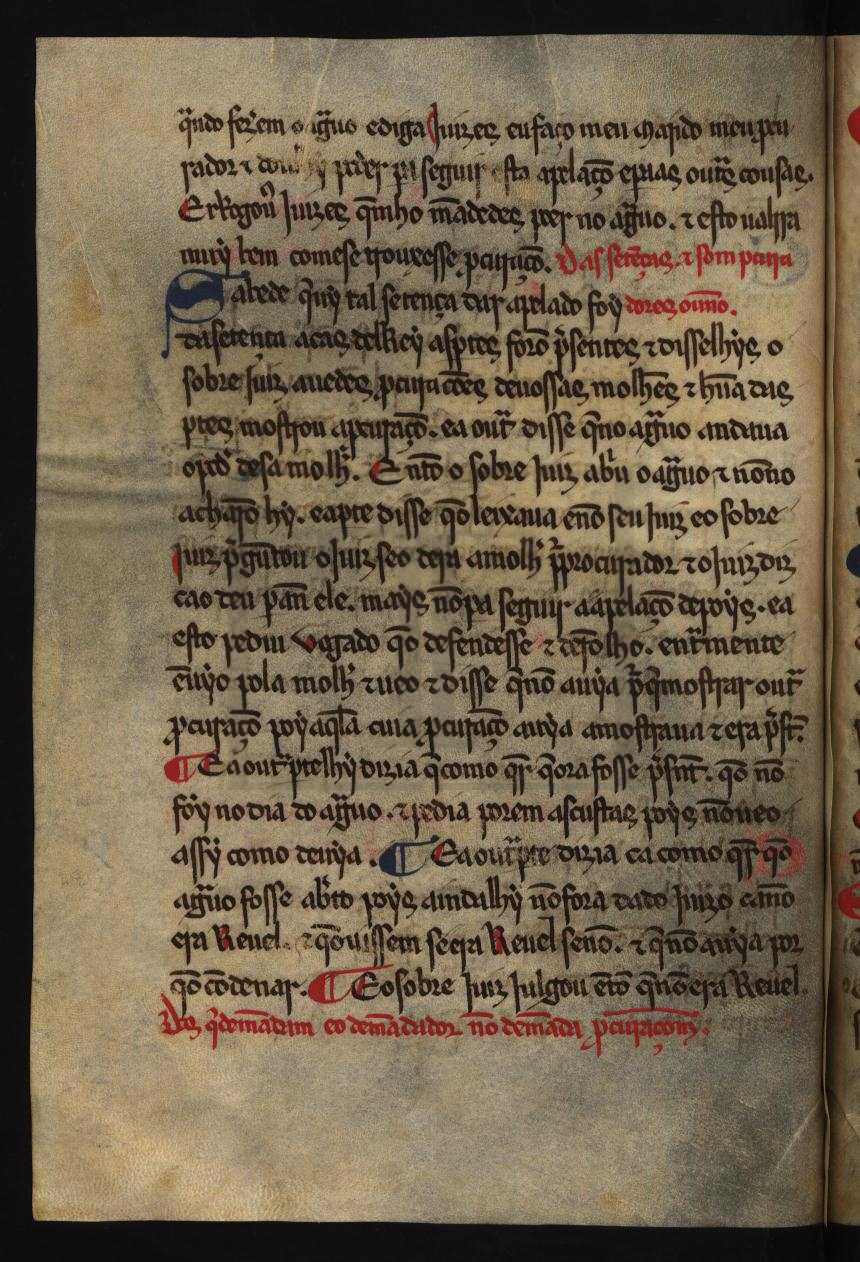 q̃ndo ferẽm o ag̃uo ediga Juizes eu faço meu marido meu pcu
rador ⁊ dou pod̃er pa seguir esta apelaçõ epias out̃s cousas.
E rrogou Juizes q̃ minho mãdedes poer no ag̃uo. ⁊ esto ualrra
muỹ bem comese trouxesse ꝓcuraçõ. Das setẽças ⁊ som pcura
Sabede q̃ hũ tal setença dar apelado foỹ dores ou nõ.
da setença acas delRey as ptes forõ p̃sentes ⁊ disselhỹs o
sobre Juiz auedes ꝓcurações deuossas molhẽs ⁊ hũa das
ptes mostrou apcuraçõ. ea out̃ disse q̃ no ag̃uo andaua
opod̃ de sa molh̃. Entõ o sobre Juiz abriu o ag̃uo ⁊ nõno
acharõ hy. eapte disse q̃o leixaua enõ seu Juiz eo sobre
Juiz p̃gũtou o Juiz seo dera a molh̃ p̃ procurador ⁊ o Juiz diz
ca o deu pãn ele. mays nõ pa seguir a apelaçõ depoỹs. ea
esto pediu uogado q̃o defendesse ⁊ derõlho. ent̃mente
ẽuỹo pola molh̃ ⁊ ueo ⁊ disse q̃ nõ auỹa p̃q̃ mostrar out̃
ꝓcuraçõ poỹ aq̃la cuia ꝓcuraçõ auỹa amostraua ⁊ era p̃st̃.
¶ Ea out̃ ptelhỹ dizia q̃ como q̃r q̃ ora fosse p̃snt̃. q̃o nõ
foỹ no dia do ag̃uo. ⁊ pedia porem as custas poỹs nõ ueo
assỹ como deuỹa. ¶ Ea out̃ pte dizia ca como q̃r q̃o
ag̃uo fosse ab̃to poỹs aindalhỹ nõ fora dado Juizo ca nõ
era Reuel. ⁊ q̃ouissem se era Reuel senõ. ⁊ q̃ nõ auỹa por
q̃o cõdenar. ¶ Eo sobre Juiz Julgou entõ q̃ nõ era Reuel.
Dos q̃ demãdam eo demãdador nõ demãda ꝓcuraçom.